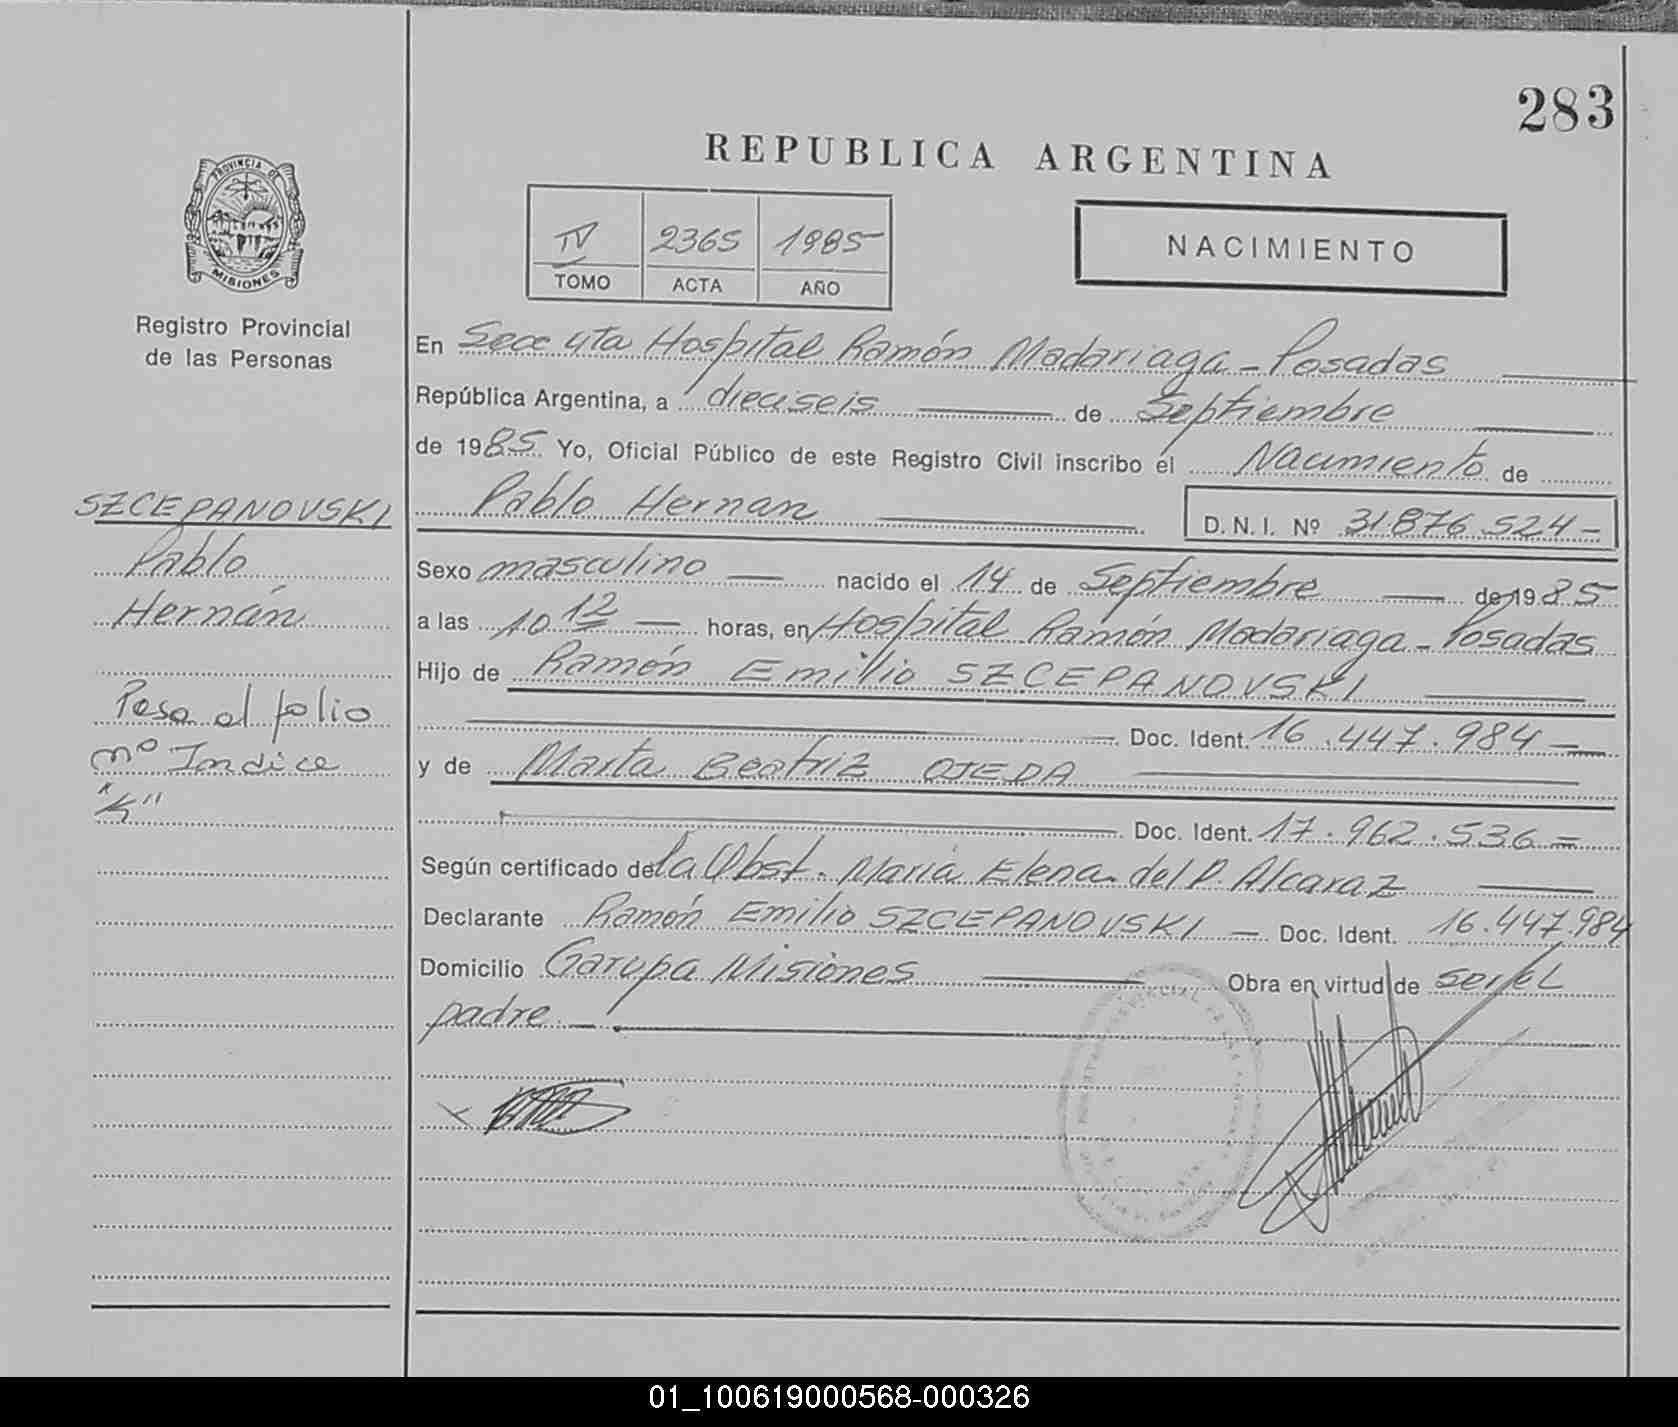 283
REPUBLICA ARGENTINA
PROVINCIA DE
MISIONES
Registro Provincial
de las Personas
IV 2365 1985
TOMO ACTA AÑO
NACIMIENTO
En Secc 4ta Hospital Ramón Madariaga - Posadas
República Argentina, a dieciseis de Septiembre
de 1985 Yo, Oficial Público de este Registro Civil inscribo el Nacimiento de
Pablo Hernan D. N. I. Nº 31876.524-
Sexo masculino nacido el 14 de Septiembre de 1985
a las 10 12 horas, en Hospital Ramón Madariaga - Posadas
Hijo de Ramón Emilio SZCEPANOVSKI
Doc. Ident. 16.447.984
y de Marta Beatriz OJEDA
Doc. Ident. 17.962.536=
Según certificado de la Obst. Maria Elena del P. Alcaraz
Declarante Ramón Emilio SZCEPANOVSKI - Doc. Ident. 16.447.984
Domicilio Garupa Misiones Obra en virtud de ser el
padre.-
SZCEPANOVSKI
Pablo
Hernán
Pasa al folio
nº Indice
"K"
01_100619000568-000326